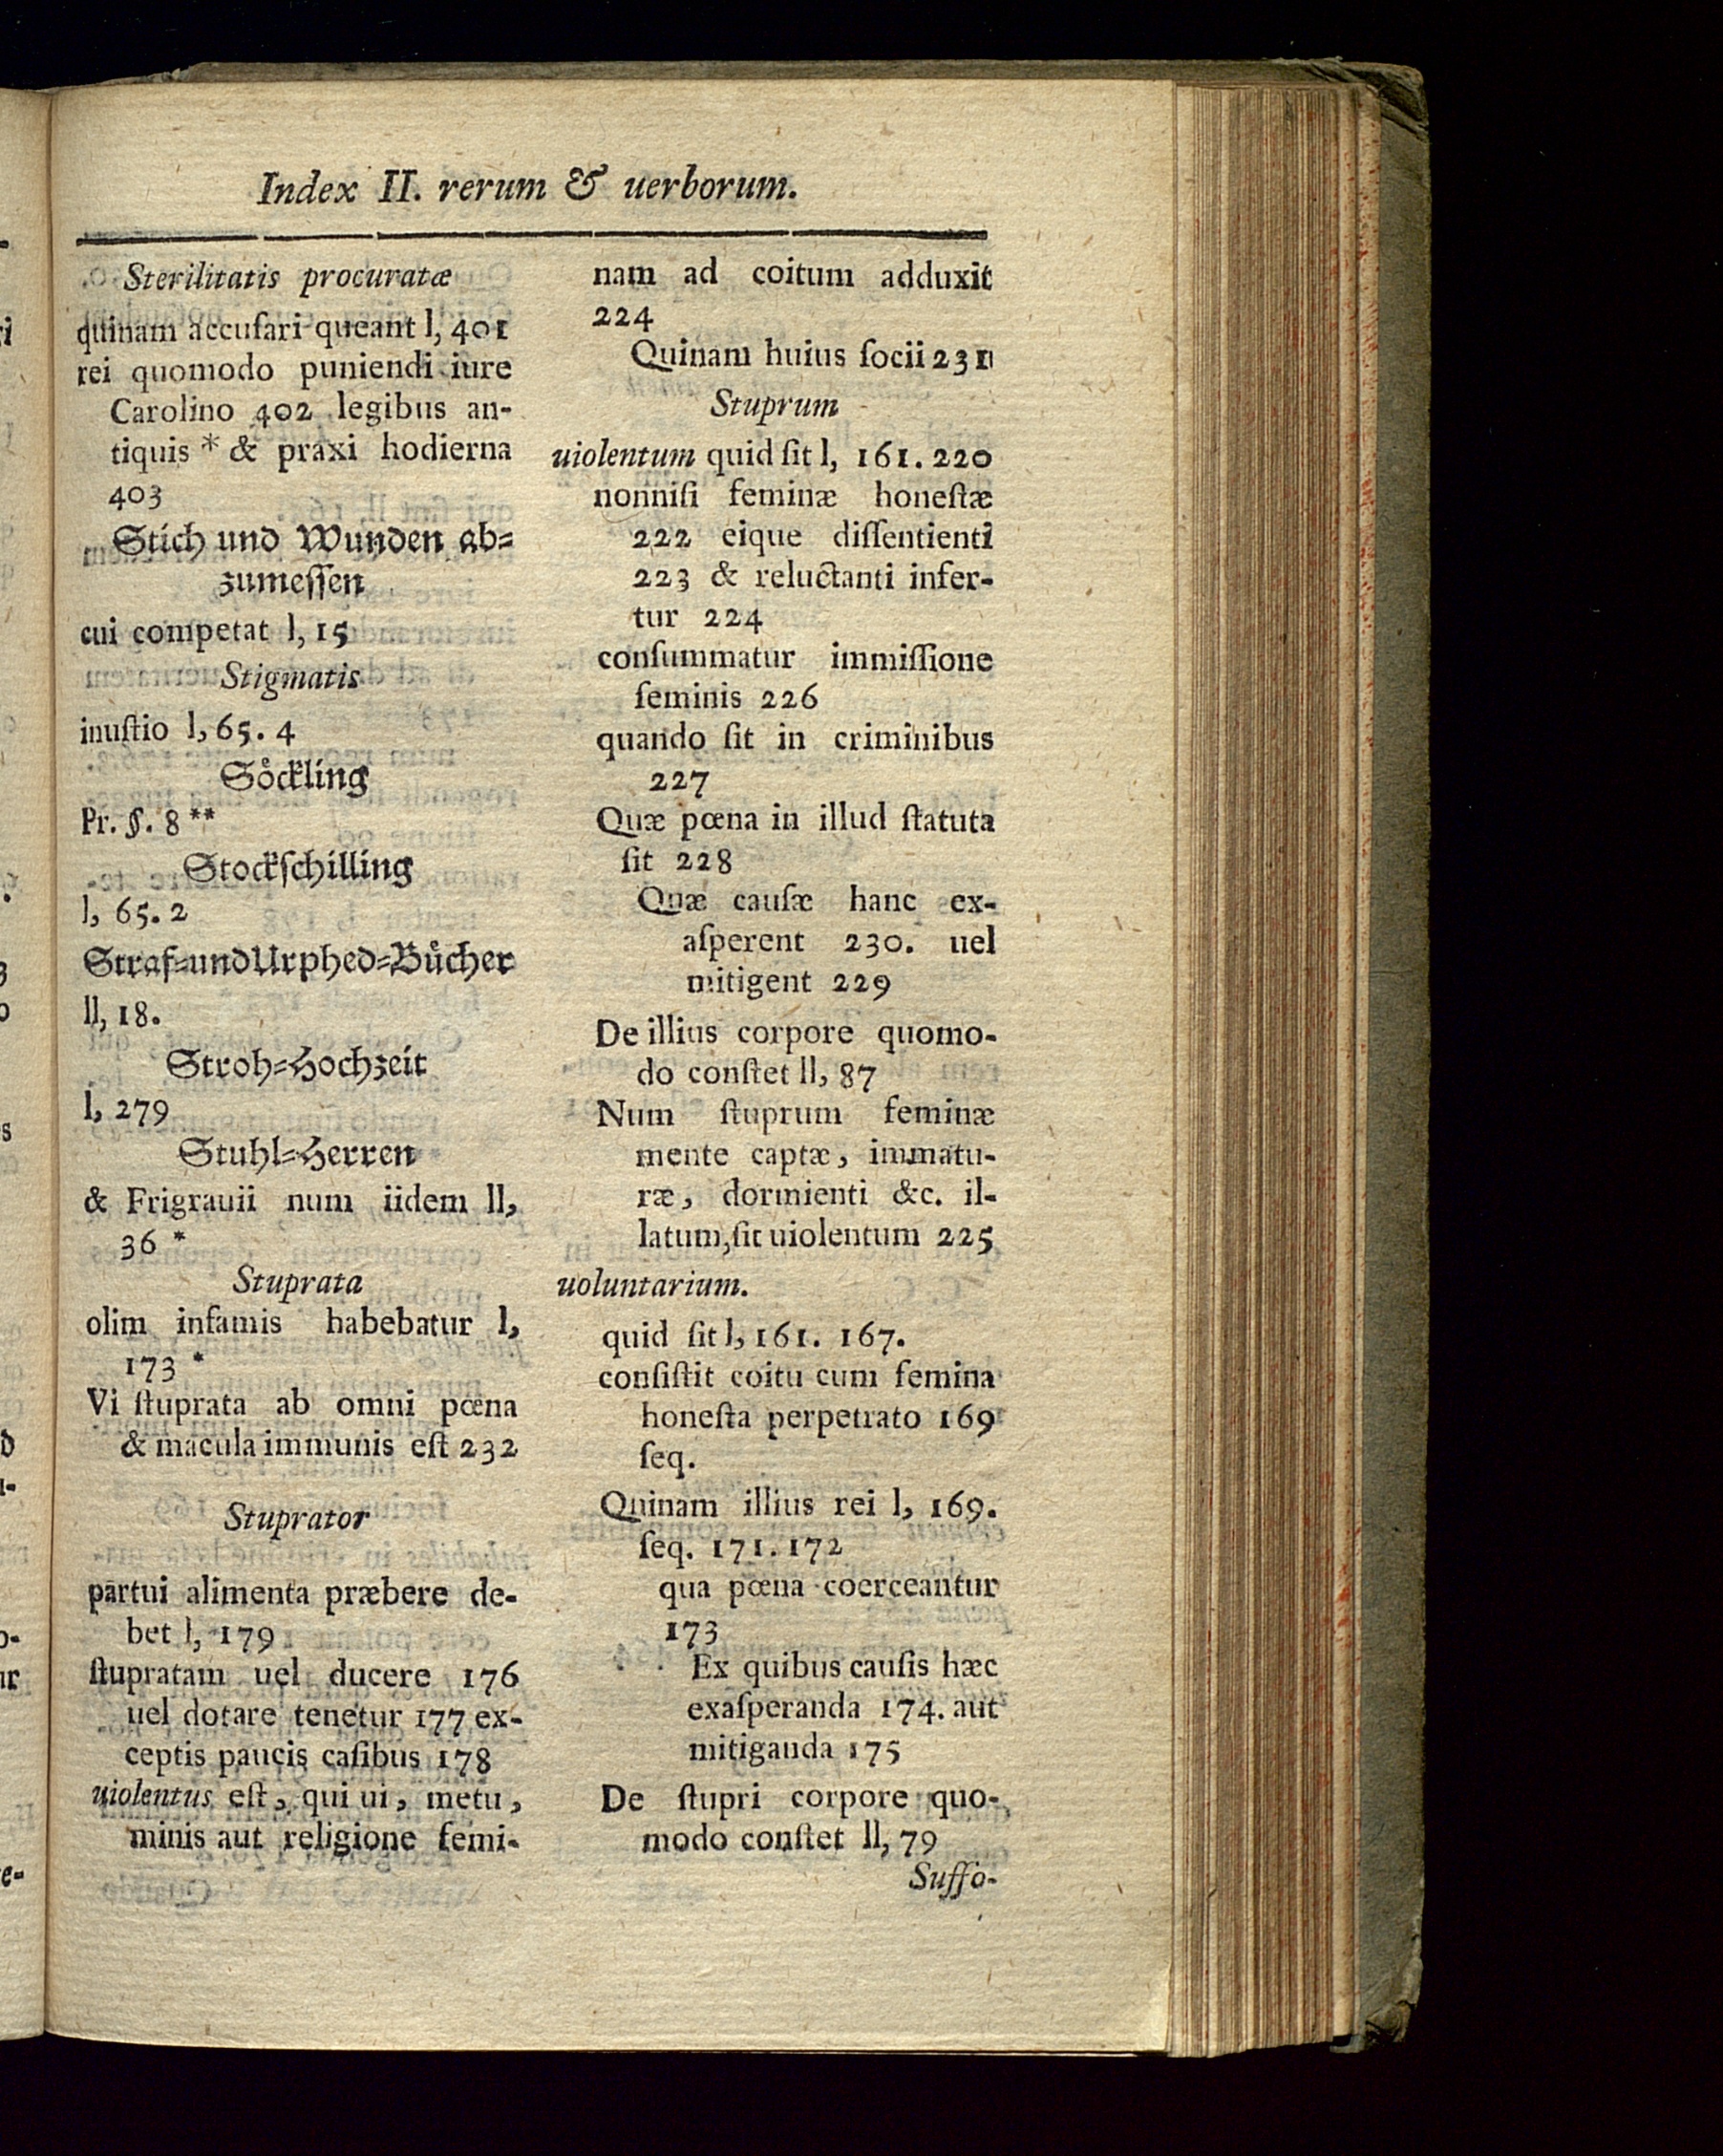 Index II. rerum & uerborum.
Sterilitatis procuratæ
quinam accuſari queant l, 401
rei quomodo puniendi iure
Carolino 402 legibus an-
tiquis * & praxi hodierna
403
Stich und Wunden ab=
zumeſſen
cui competat l, 15
Stigmatis
inuſtio l, 65. 4
Soͤckling
Pr. §. 8 **
Stockſchilling
l, 65. 2
Straf=und Urphed=Buͤcher
ll, 18.
Stroh=Hochzeit
l, 279
Stuhl=Herren
& Frigrauii num iidem ll,
36 *
Stuprata
olim infamis habebatur l,
173 *
Vi ſtuprata ab omni pœna
& macula immunis eſt 232
Stuprator
partui alimenta præbere de-
bet l, 179
ſtupratam uel ducere 176
uel dotare tenetur 177 ex-
ceptis paucis caſibus 178
uiolentus eſt, qui ui, metu,
minis aut religione femi-
nam ad coitum adduxit
224
Quinam huius ſocii 231
Stuprum
uiolentum quid ſit l, 161. 220
nonniſi feminæ honeſtæ
222 eique diſſentienti
223 & reluctanti infer-
tur 224
conſummatur immiſſione
ſeminis 226
quando ſit in criminibus
227
Quæ pœna in illud ſtatuta
ſit 228
Quæ cauſæ hanc ex-
aſperent 230. uel
mitigent 229
De illius corpore quomo-
do conſtet ll, 87
Num ſtuprum feminæ
mente captæ, immatu-
ræ, dormienti &c. il-
latum, ſit uiolentum 225
uoluntarium.
quid ſit l, 161. 167.
conſiſtit coitu cum femina
honeſta perpetrato 169
ſeq.
Quinam illius rei l, 169.
ſeq. 171. 172
qua pœna coerceantur
173
Ex quibus cauſis hæc
exaſperanda 174. aut
mitiganda 175
De ſtupri corpore quo-
modo conſtet ll, 79
Suffo-